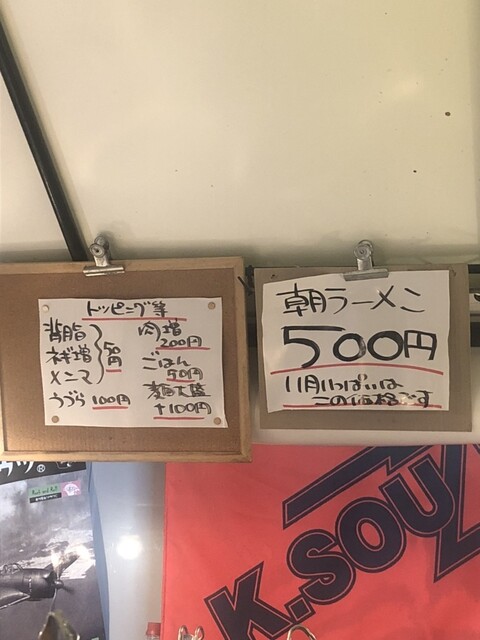 トッピング等
背脂
ネギ増
メンマ
50円
うづら 100円
肉増
200円
ごはん
50円
麺大盛
+100円
朝ラーメン
500円
11月いっぱいは
この価格です
K.SOU